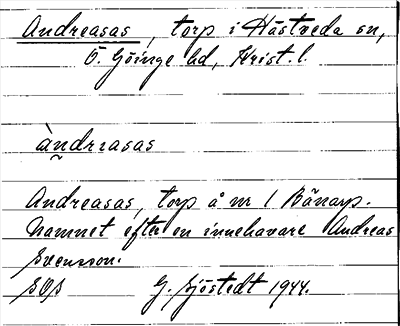 Andreasas, torp i Hästveda sn,
Ö. Göinge hd, Krist. l.
àndrɪasas
Andreasas, torp å nr 1 Bänarp.
Namnet efter en innehavare Andreas
Svensson.
G. Sjöstedt 1944.